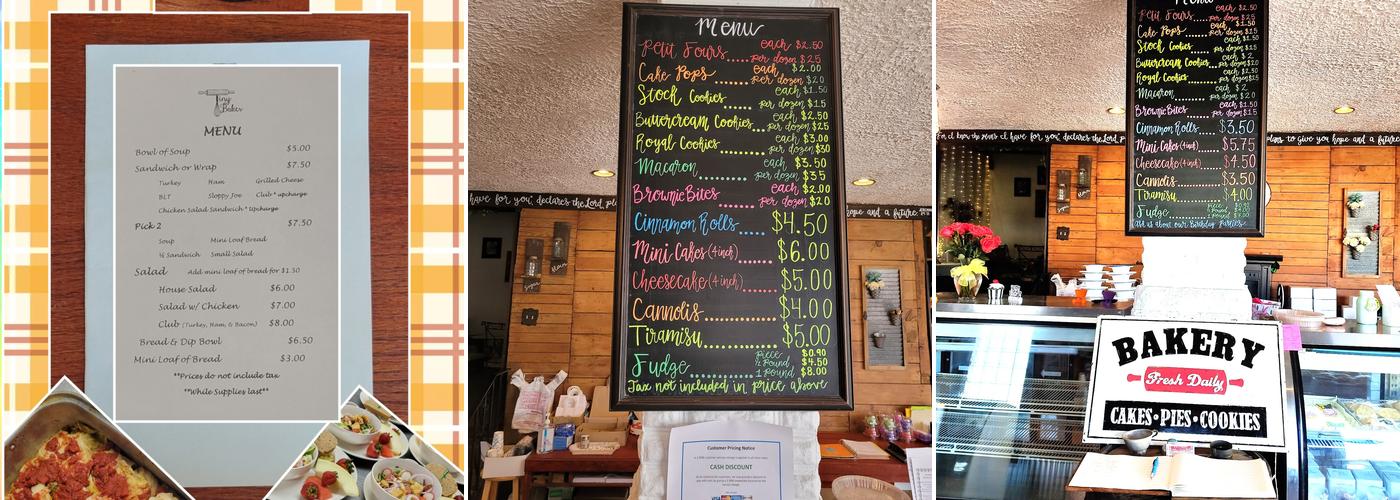 Tiny
Baker
MENU
Bowl of Soup $5.00
Sandwich or Wrap $7.50
Turkey Ham Grilled Cheese
BLT Sloppy Joe Club * upcharge
Chicken Salad Sandwich * upcharge
Pick 2 $7.50
Soup Mini Loaf Bread
½ Sandwich Small Salad
Salad Add mini loaf of bread for $1.50
House Salad $6.00
Salad w/ Chicken $7.00
Club (Turkey, Ham, & Bacon) $8.00
Bread & Dip Bowl $6.50
Mini Loaf of Bread $3.00
**Prices do not include tax
**While Supplies last**
Menu
Petit Fours..... each $2.50
per dozen $25
Cake Pops...... each $2.00
per dozen $20
Stock Cookies...... each $1.50
per dozen $15
Buttercream Cookies... each $2.50
per dozen $25
Royal Cookies...... each $3.00
per dozen $30
Macaron.......... each $3.50
per dozen $35
Brownie Bites...... each $2.00
per dozen $20
Cinnamon Rolls..... $4.50
Mini Cakes (4 inch)...... $6.00
Cheesecake (4 inch)..... $5.00
Cannolis............ $4.00
Tiramisu............ $5.00
Fudge......... Piece $0.90
½ Pound $4.50
1 Pound $8.00
Tax not included in price above
have for you," declares the Lord,
hope and a future.
Customer Pricing Notice
CASH DISCOUNT
Menu
each $2.50
Petit Fours..... per dozen $25
each $1.50
Cake Pops..... per dozen $15
Stock Cookies
each $1.50
per dozen $15
each $2
Buttercream Cookies
Royal Cookies
each $2
Macaron........ per dozen $20
each $1.50
Brownie Bites..... per dozen $15
Cinnamon Rolls..... $3.50
Mini Cakes (4 inch)..... $5.75
Cheesecake (4 inch)..... $4.50
Cannolis.......... $3.50
Tiramisu.......... $4.00
Fudge
For I know the plans I have for you," declares the Lord,
plans to give you hope and a future.
BAKERY
Fresh Daily
CAKES•PIES•COOKIES